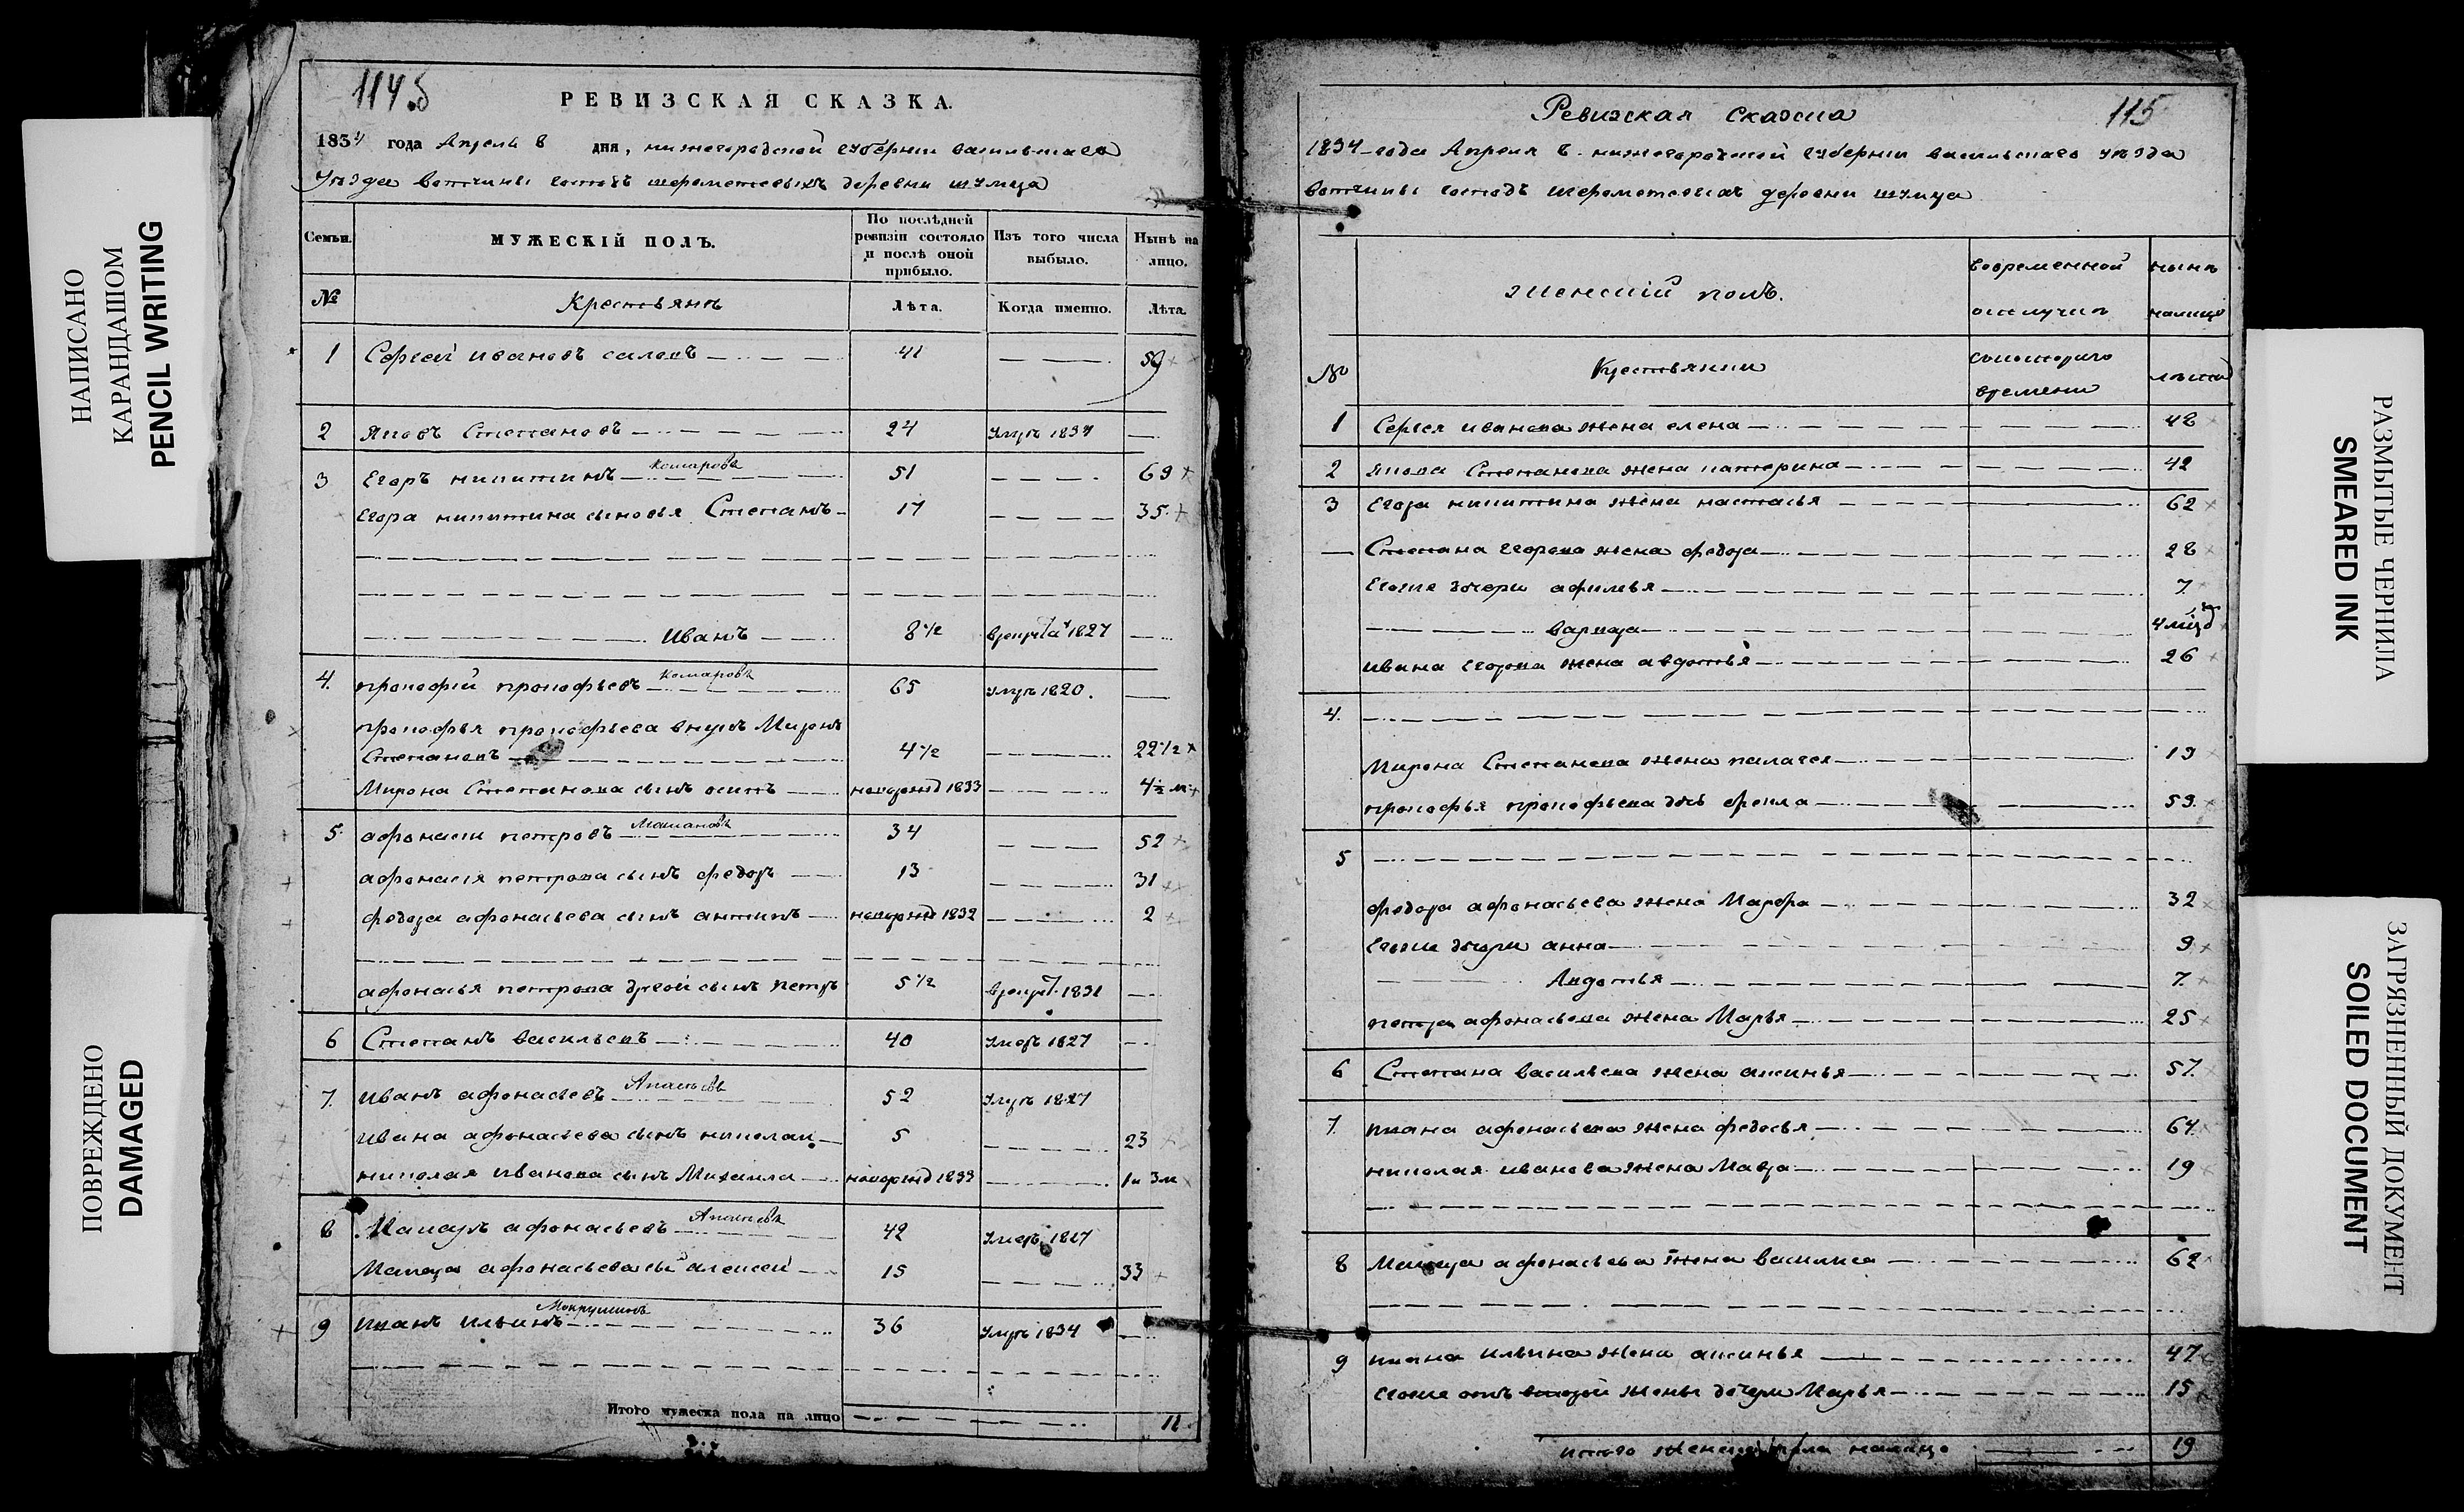 НАПИСАНО
КАРАНДАШОМ
PENCIL WRITING
ПОВРЕЖДЕНО
DAMAGED
114.б
РЕВИЗСКАЯ СКАЗКА.
1834 года Апреля 8 дня, нижегородской губернии васильскаго
Уѣзда вотчины господъ шереметевыхъ деревни шумца
Семьи.
МУЖЕСКІЙ ПОЛЪ.
По послѣдней ревизіи состояло и послѣ оной прибыло.
Изъ того числа выбыло.
Нынѣ на лицо.
№ Крестьянъ Лѣта. Когда именно. Лѣта.
1 Сергей ивановъ 41 59
2 Яковъ Степановъ 24 умръ 1834
3 Егоръ никитинъ Комаровъ 51 69
Егора никитина сыновья Степанъ 17 35
Иванъ 8 1/2 1827
4. прокофей прокофьевъ Комаровъ 65 умръ 1820.
прокофья прокофьева внукъ Миронъ
Степановъ 4 1/2 22 1/2
Мирона Степанова сынъ осипъ новорожд 1833 4 1/2 м
5 афонасеи петровъ 34 52
афонасія петрова сынъ федоръ 13 31
федора афонасьева сынъ антипъ новорожд 1832 2
афонасья петрова другой сынъ петръ 5 1/2 1831
6 Степанъ васильевъ 40 умеръ 1827
7. иванъ афонасьевъ 52 умръ 1827
ивана афонасьева сынъ николаи 5 23
николая иванова сынъ Михаила новорожд 1833 1 и 3 м
8 Макаръ афонасьевъ 42 умеръ 1827
Макара афонасьева сынъ алексеи 15 33
9 иванъ ильинъ Мокрушинъ 36 умръ 1834
Итого мужеска пола на лицо 11
Ревизская Сказка 115
1834 года Апреля 8. нижегородской губернии васильскаго уѣзда
вотчины господъ шереметевыхъ деревни шумца
женский полъ.
вовременной отлучкѣ
нынѣ налицо
№ Крестьянки
скотораго времени
лѣта
1 Сергея иванова жена елена 48
2 якова Степанова жена катерина 42
3 Егора никитина жена настасья 62
Степана егорова жена федора 28
Егоже дочери афимья 7
варвара 4
ивана егорова жена авдотья 26
4.
Мирона Степанова жена палагея 19
прокофья прокофьева дочь фекла 59
5
федора афонасьева жена Марфа 32
Егоже дочери анна 9
Авдотья 7
петра афонасьева жена Марья 25
6 Степана васильева жена аксинья 57
7 ивана афонасьева жена федосья 64
николая иванова жена Мавра 19
8 Макара афонасьева жена василиса 62
9 ивана ильина жена аксинья 47
Егоже отъ второй жены дочери Марья 15
итого женска пола налицо 19
РАЗМЫТЫЕ ЧЕРНИЛА
SMEARED INK
ЗАГРЯЗНЕННЫЙ ДОКУМЕНТ
SOILED DOCUMENT